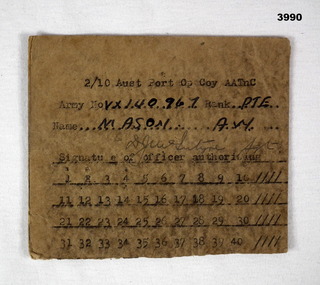 3990
2/10 Aust Port Op Coy AATnC
Army No VX140967 Rank..PTE..
Name...MASON..... A.W....
Signature of officer authorising
1 2 3 4 5 6 7 8 9 10 ////
11 12 13 24 15 16 17 18 19 20 ////
21 22 23 24 25 26 27 28 29 30 ////
31 32 33 34 35 36 37 38 39 40 ////